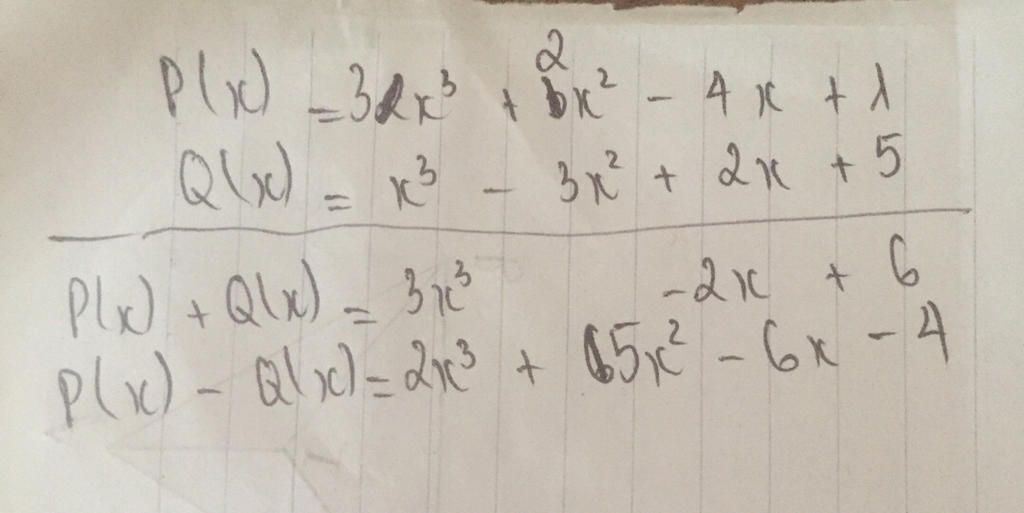 P(x) = 3x³ + 2x² - 4x + 1
Q(x) = x³ - 3x² + 2x + 5
P(x) + Q(x) = 3x³ -2x + 6
P(x) - Q(x) = 2x³ + 5x² - 6x - 4